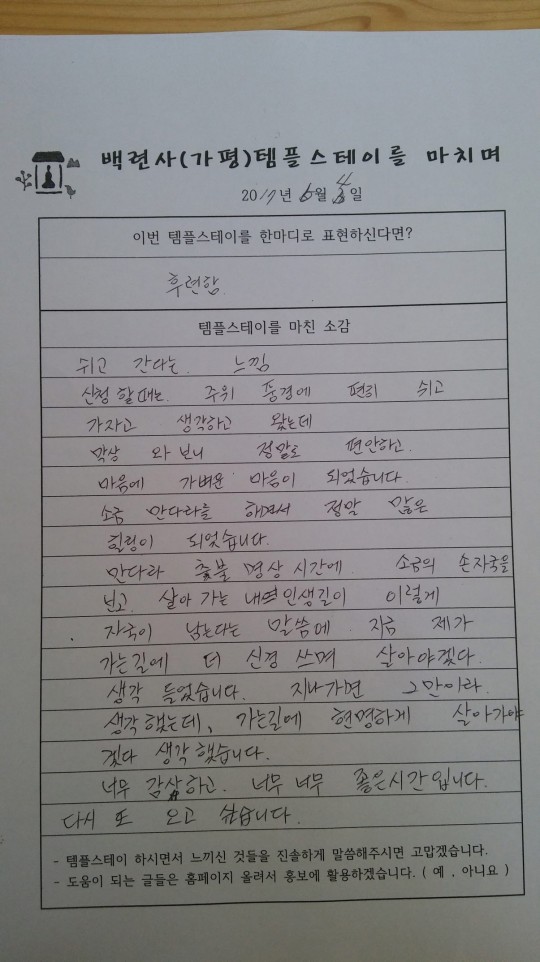 백련사(가평)템플스테이를 마치며
2017년 6월 4일
이번 템플스테이를 한마디로 표현하신다면?
후련함.
템플스테이를 마친 소감
쉬고 간다는. 느낌
신청 할때는. 주위 풍경에 편히 쉬고
가자고 생각하고 왔는데
막상 와 보니 정말로 편안하고.
마음에 가벼운 마음이 되었습니다.
소금 만다라를 하면서 정말 많은
힐링이 되었습니다.
만다라 촛불 명상 시간에. 소금의 손자국을
보고. 살아 가는 내 인생길이 이렇게
자국이 남는다는 말씀에 지금 제가
가는길에 더 신경 쓰며 살아야겠다.
생각 들었습니다. 지나가면 그만이라.
생각했는데, 가는길에 현명하게 살아가야
겠다 생각 했습니다.
너무 감사하고. 너무너무 좋은시간 입니다.
다시 또 오고 싶습니다.
- 템플스테이 하시면서 느끼신 것들을 진솔하게 말씀해주시면 고맙겠습니다.
- 도움이 되는 글들은 홈페이지 올려서 홍보에 활용하겠습니다. ( 예 , 아니요 )